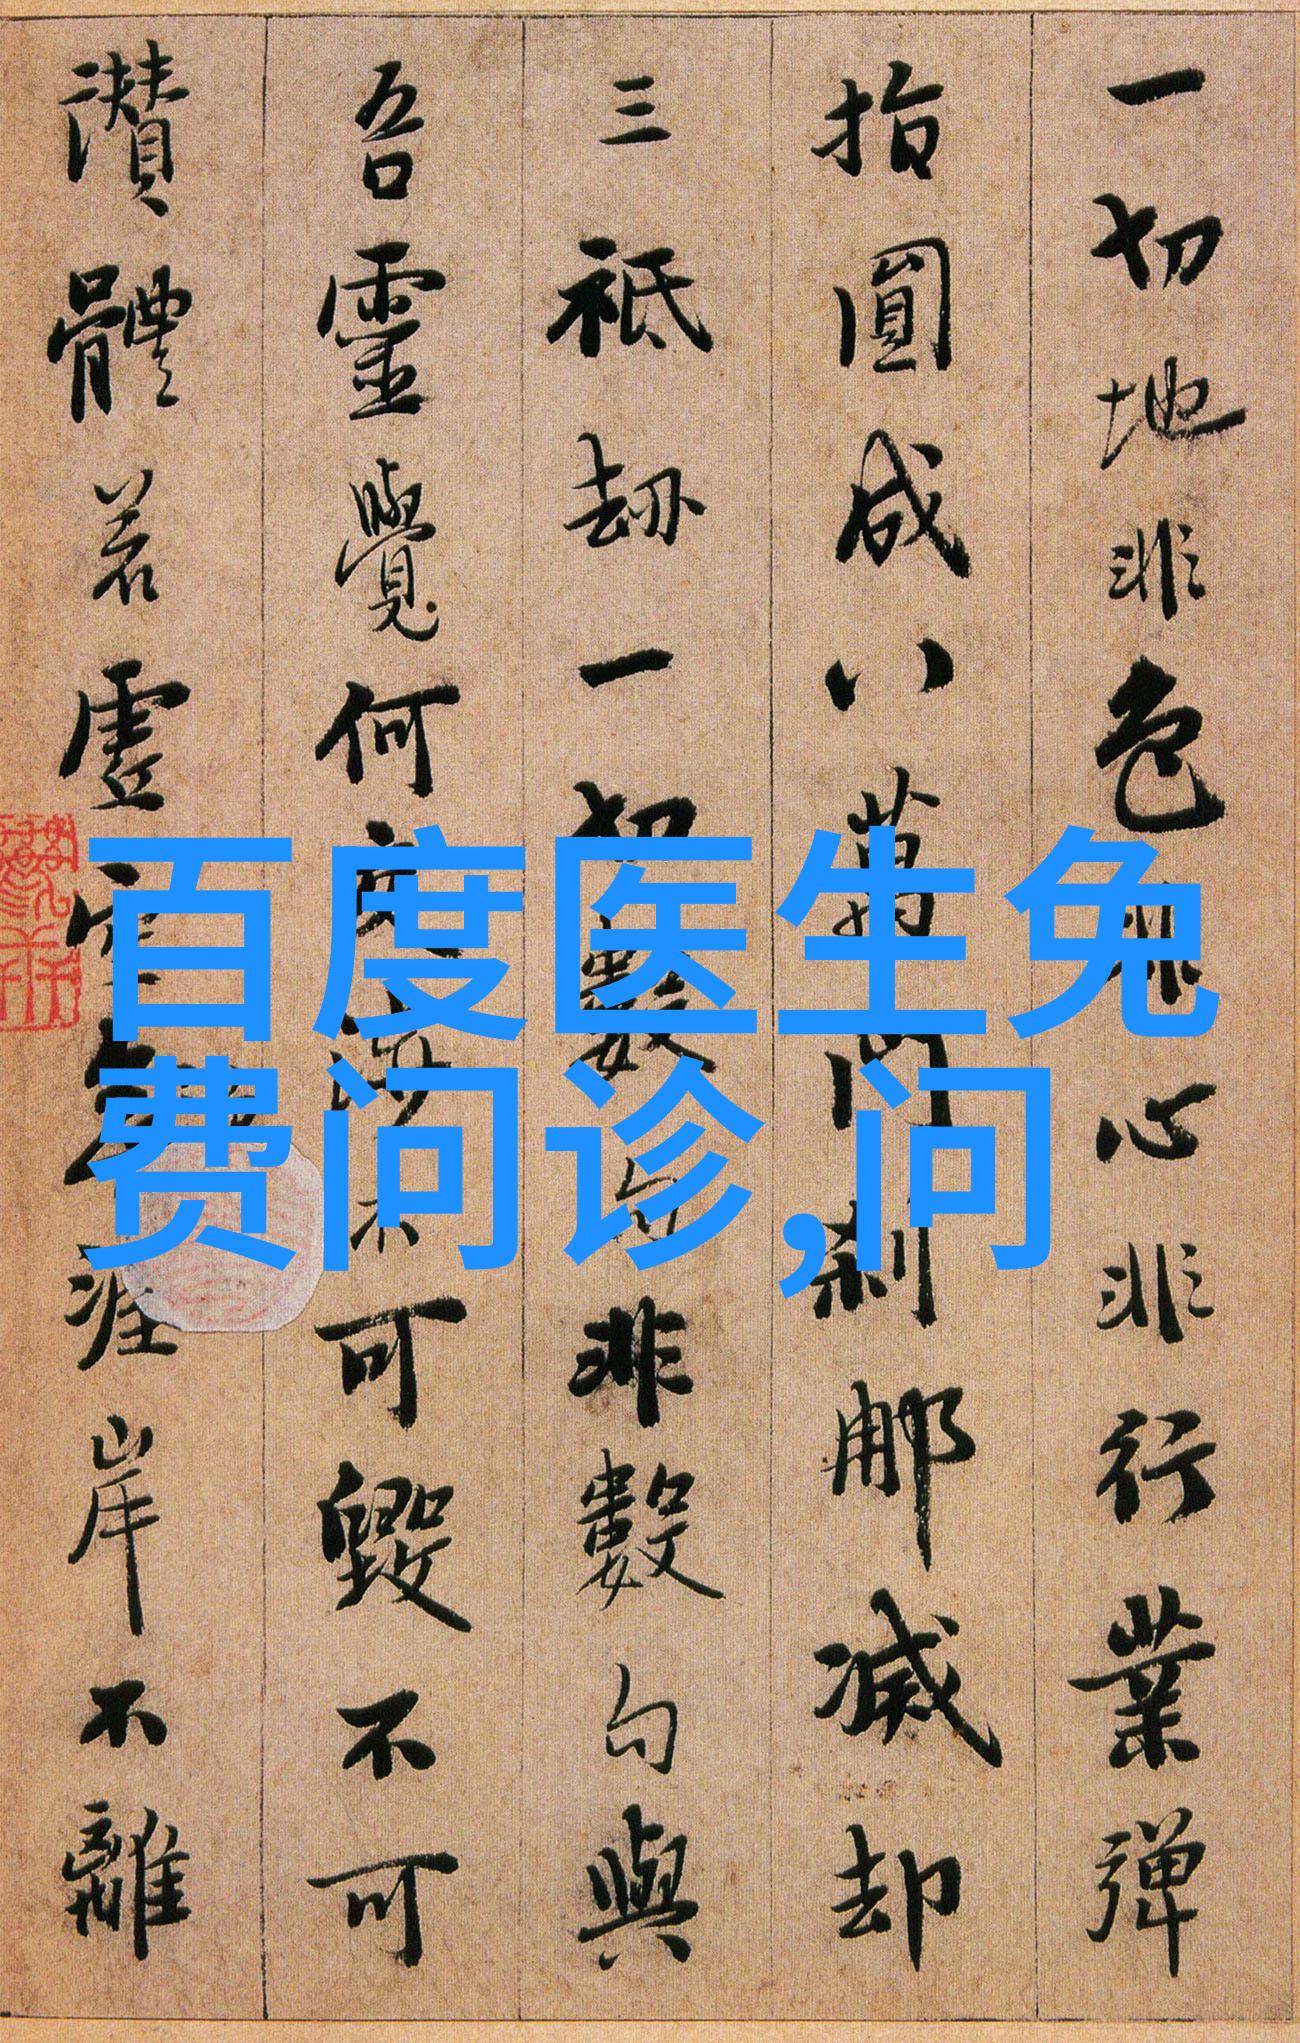 一切地非色非心非行業彈
指圓成八萬門刹那滅却
三祇劫一切數句非數句與
吾靈覺何交涉不可毀不可
讃體若虛空勿涯岸不離
百度医生免
费问诊,问